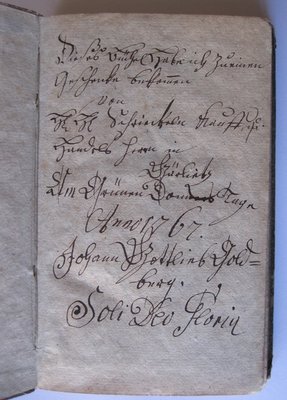 Dieses Buch habe ich zu einen
Geschenke bekommen
von
Kauff- u.
Handels Herrn in
Görlitz
Am Grünen Donners Tage
Anno 1767.
Johann Gottlieb Gold=
berg.
Soli Deo Gloria